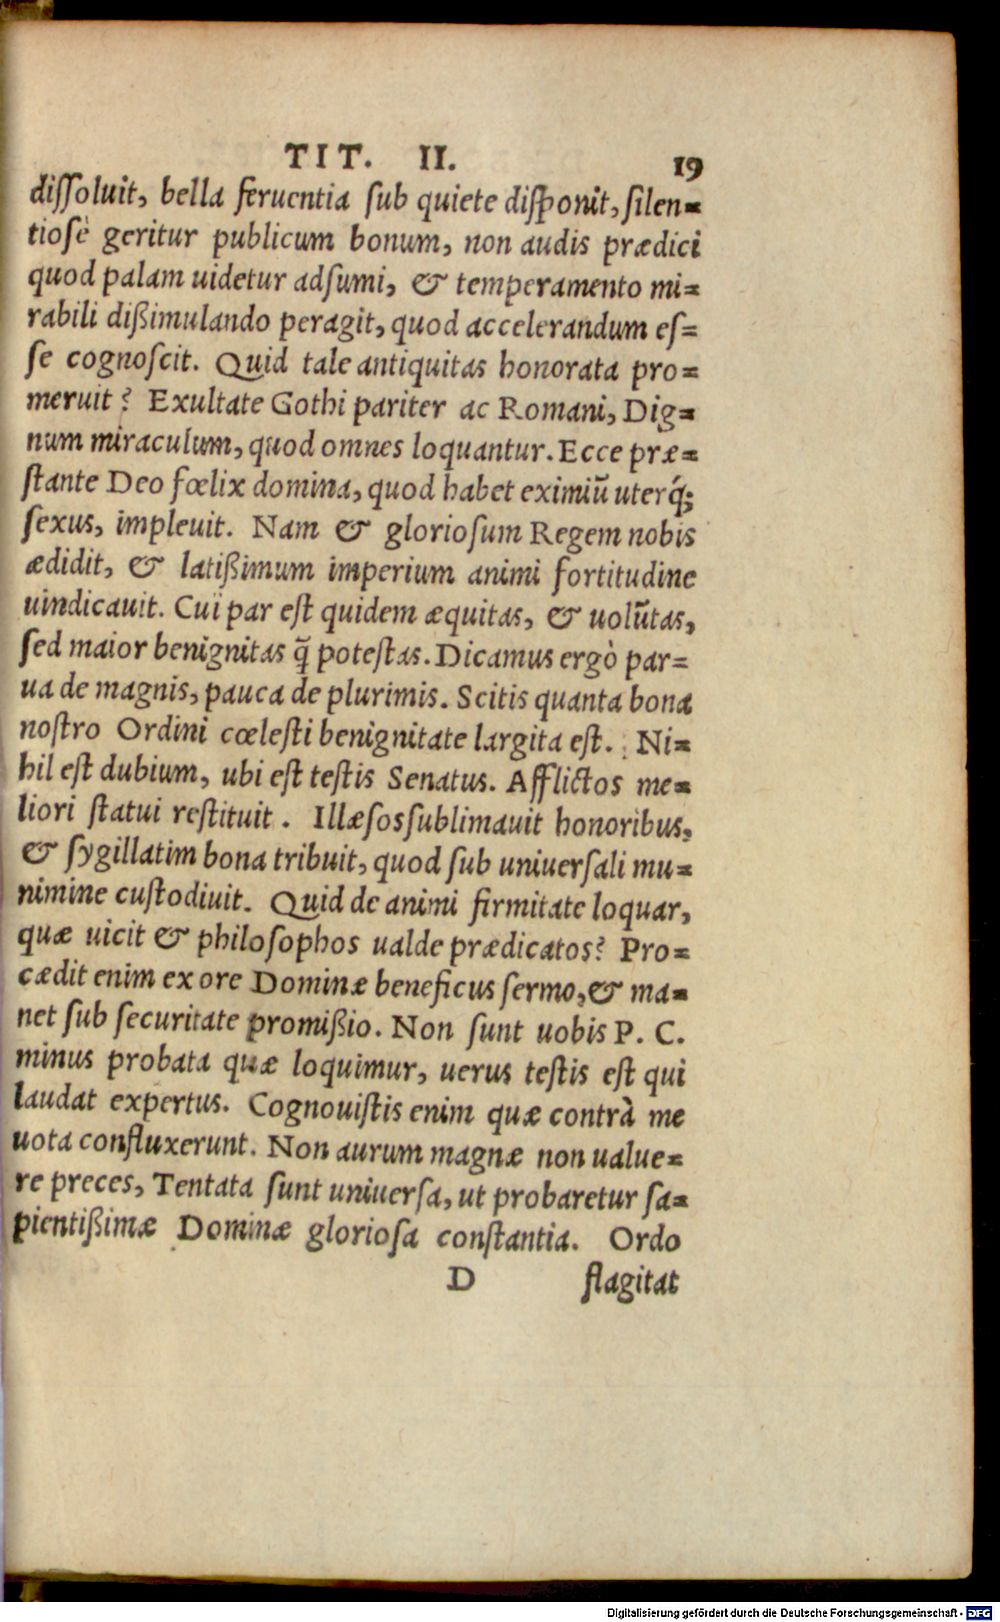 TIT. II. 19
dissoluit, bella feruentia sub quiete disponit, silen=
tiosè geritur publicum bonum, non audis prædici
quod palam uidetur adsumi, & temperamento mi=
rabili dißimulando peragit, quod accelerandum es=
se cognoscit. Quid tale antiquitas honorata pro=
meruit? Exultate Gothi pariter ac Romani, Dig=
num miraculum, quod omnes loquantur. Ecce præ=
stante Deo fœlix domina, quod habet eximiū uterq́;
sexus, impleuit. Nam & gloriosum Regem nobis
ædidit, & latißimum imperium animi fortitudine
uindicauit. Cui par est quidem æquitas, & uolūtas,
sed maior benignitas q̄ potestas. Dicamus ergò par=
ua de magnis, pauca de plurimis. Scitis quanta bona
nostro Ordini cœlesti benignitate largita est. Ni=
hil est dubium, ubi est testis Senatus. Afflictos me=
liori statui restituit. Illæsos sublimauit honoribus,
& sygillatim bona tribuit, quod sub uniuersali mu=
nimine custodiuit. Quid de animi firmitate loquar,
quæ uicit & philosophos ualde prædicatos? Pro=
cædit enim ex ore Dominæ beneficus sermo, & ma=
net sub securitate promißio. Non sunt uobis P. C.
minus probata quæ loquimur, uerus testis est qui
laudat expertus. Cognouistis enim quæ contrà me
uota confluxerunt. Non aurum magnæ non ualue=
re preces, Tentata sunt uniuersa, ut probaretur sa=
pientißimæ Dominæ gloriosa constantia. Ordo
D flagitat
Digitalisierung gefördert durch die Deutsche Forschungsgemeinschaft - DFG